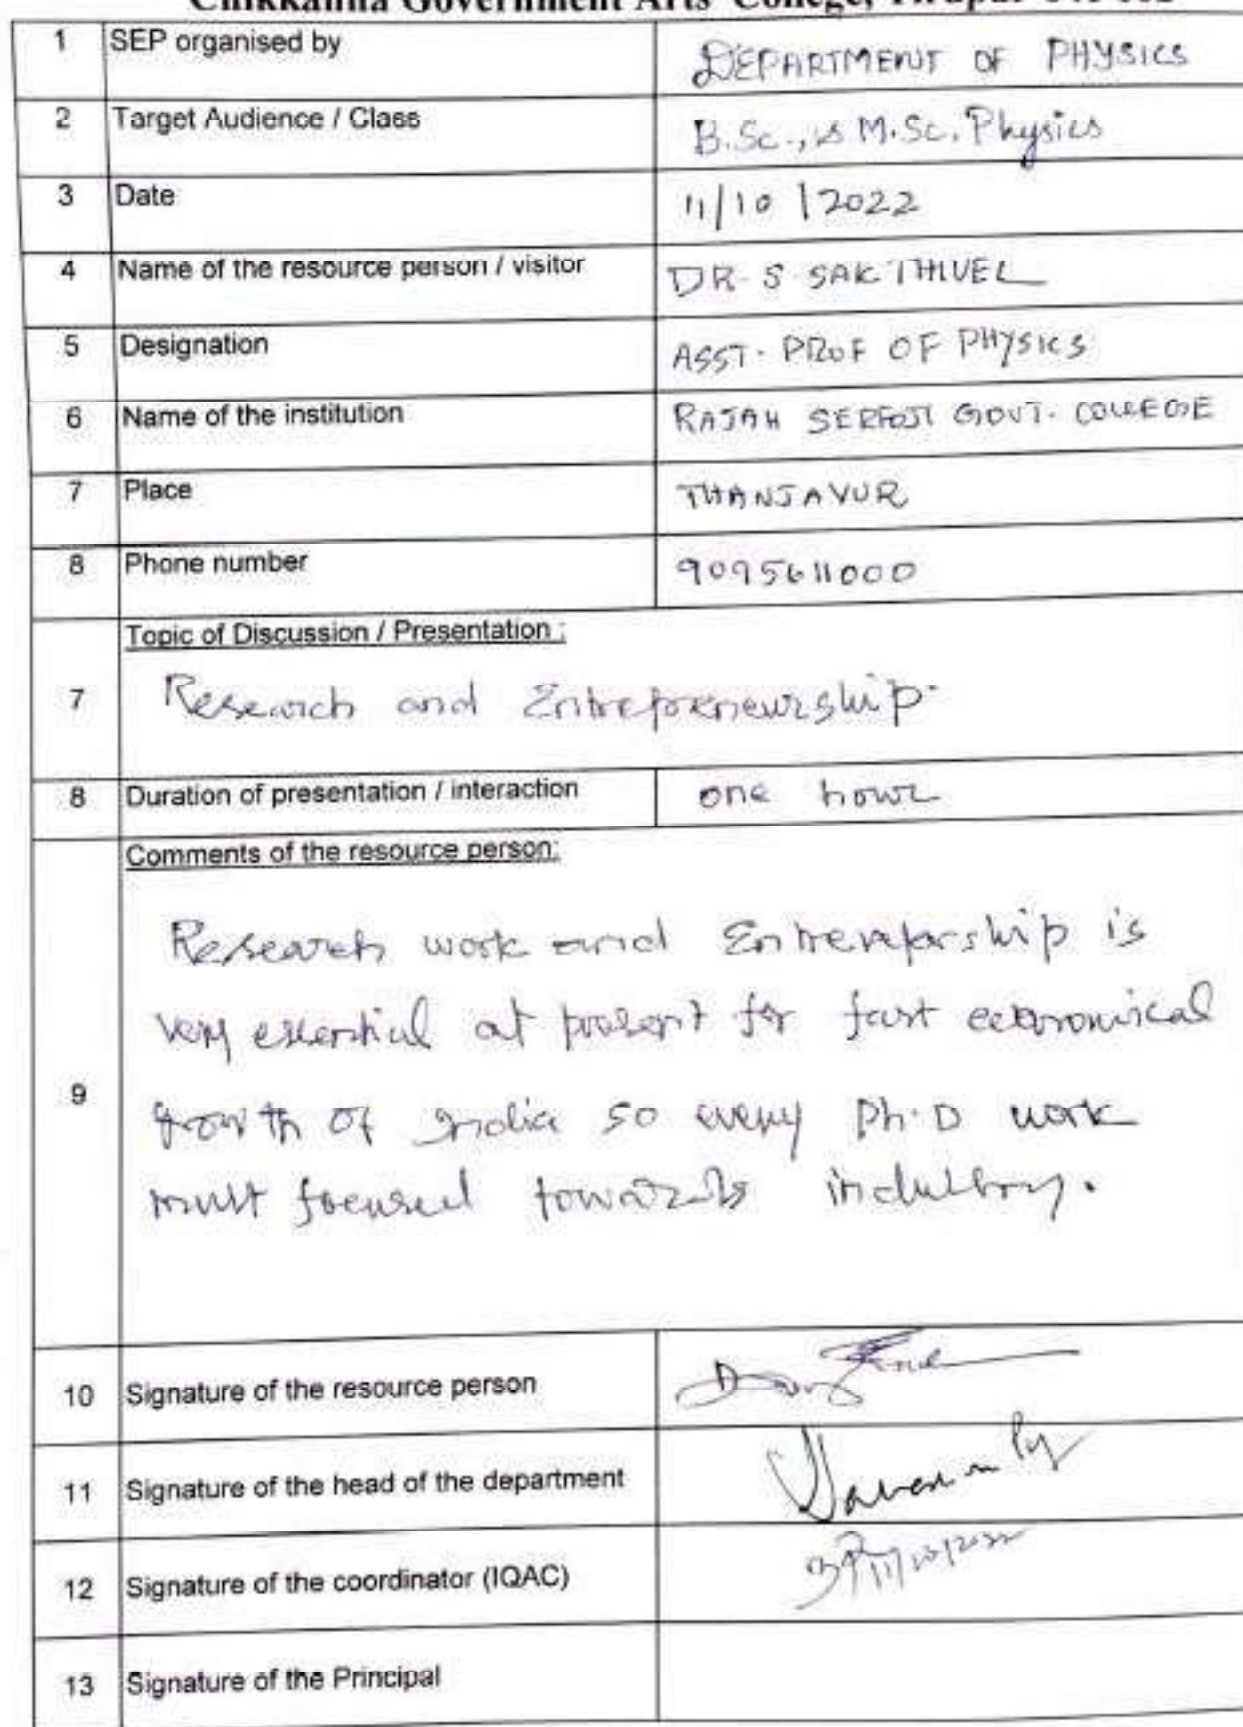 Chikkanna Government Arts College, Tirupur
1 SEP organised by DEPARTMENT OF PHYSICS
2 Target Audience / Class B.Sc., & M.Sc. Physics
3 Date 11/10/2022
4 Name of the resource person / visitor DR. S. SAKTHIVEL
5 Designation ASST. PROF OF PHYSICS
6 Name of the institution RAJAH SERFOJI GOVT. COLLEGE
7 Place THANJAVUR
8 Phone number 9095611000
Topic of Discussion / Presentation :
7 Research and Entrepreneurship.
8 Duration of presentation / interaction one hour
Comments of the resource person:
Research work and is
very essential at present for fast economical
9
growth of India so every Ph.D work
must focused towards industry.
10 Signature of the resource person
11 Signature of the head of the department
12 Signature of the coordinator (IQAC) 11/10/2022
13 Signature of the Principal